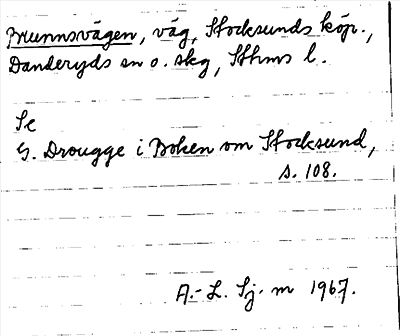 Brunnsvägen, väg, Stocksunds köp.,
Danderyds sn o. skg, Sthms l.
Se
G. Drougge i Boken om Stocksund,
s. 108.
A.-L. Sj. m 1967.